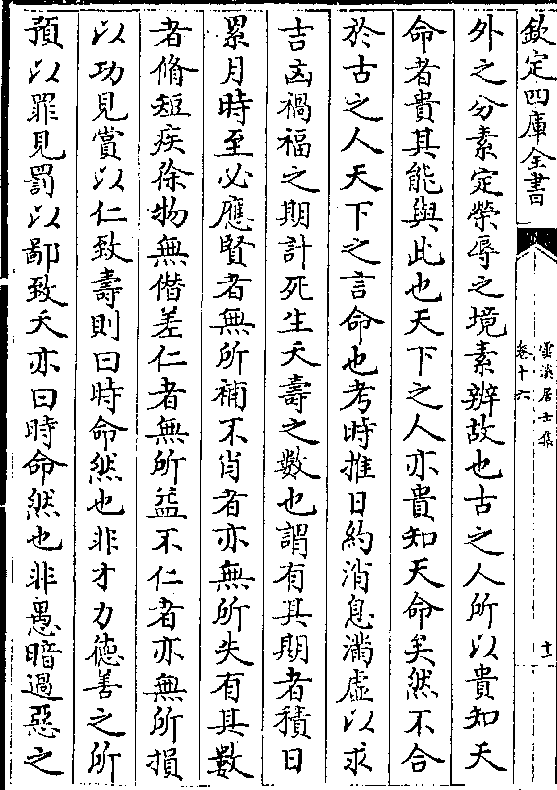 欽定四庫全書
雲溪居士集
卷十六
十一
外之分素定榮辱之境素辨故也古之人所以貴知天
命者貴其能與此也天下之人亦貴知天命矣然不合
於古之人天下之言命也考時推日約消息滿虛以求
吉凶禍福之期計死生夭壽之數也謂有其期者積日
累月時至必應賢者無所補不肖者亦無所失有其數
者脩短疾徐物無僭差仁者無所益不仁者亦無所損
以功見賞以仁致壽則曰時命然也非才力德善之所
預以罪見罰以鄙致夭亦曰時命然也非愚暗過惡之